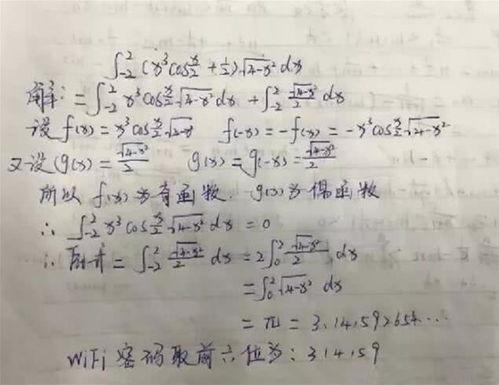 ∫₋₂² (x³cos x/2 + 1/2)√4-x² dx
解:= ∫₋₂² x³cos x/2 √4-x² dx + ∫₋₂² √4-x²/2 dx
设 f(x) = x³cos x/2 √4-x² f(-x) = -f(x) = -x³cos x/2 √4-x²
又设 g(x) = √4-x²/2 g(x) = g(-x) = √4-x²/2
所以 f(x) 为奇函数. g(x) 为偶函数
∴ ∫₋₂² x³cos x/2 √4-x² dx = 0
∴ 原式 = ∫₋₂² √4-x²/2 dx = 2∫₀² √4-x²/2 dx
= ∫₀² √4-x² dx
= π = 3.14,592654...
WiFi 密码取前六位为: 314159